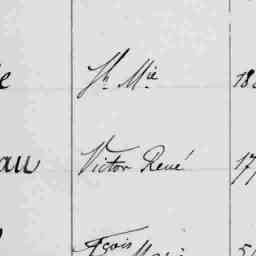 e Jh Mie 18
au Victor René 17
fçois Marie 5